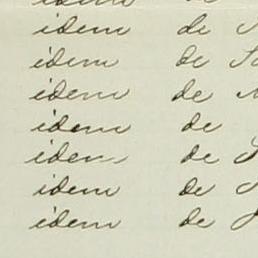 idem de
idem de
idem de
idem de
idem de
idem de
idem de
idem de